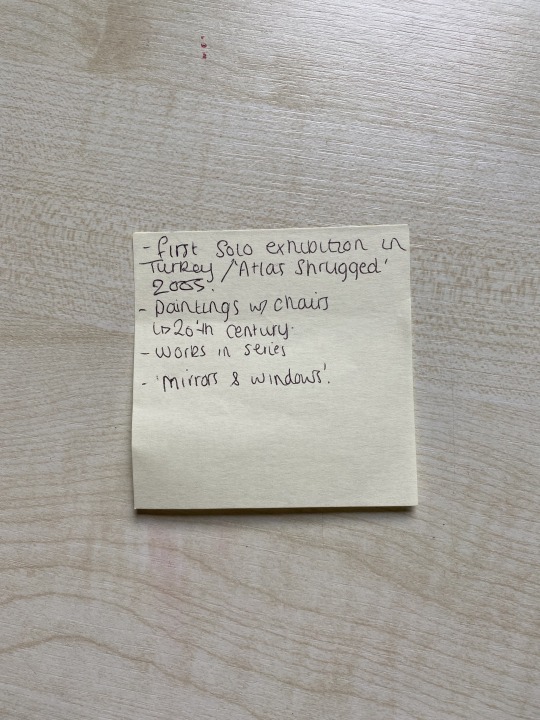 - first solo exhibition in
Turkey / 'Atlas Shrugged'
2005.
- Paintings w/ chairs
↳ 20th century.
- works in series
- 'mirrors & windows'.